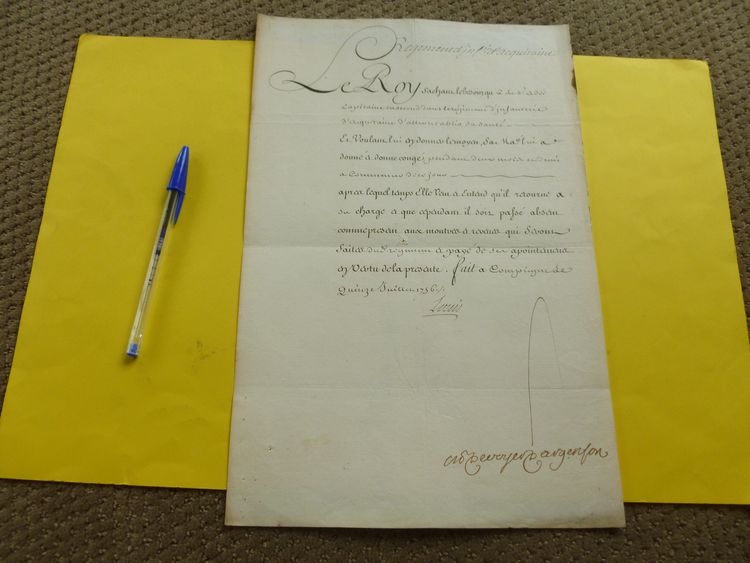 Regiment d'inf.rie d'acquitaine
Le Roy sachant le besoin que le S.r
Capitaine en second dans le regiment d'infanterie
d'acquitaine d'aller retablir sa santé.
Et Voulant lui en donner le moyen, Sa Ma.té lui a
donné & donne congé pendant deux mois et demi
a Commencer de ce jour
après lequel temps Elle Veut & Entend qu'il retourne a
sa charge & que cependant il soit passé absent
comme present aux montres & reveues qui Seront
faites dud. regiment & payé de ses apointemens
en Vertu de la presente. fait a Compiegne le
quinze Juillet 1756.
Louis
M P De voyer D'argenson